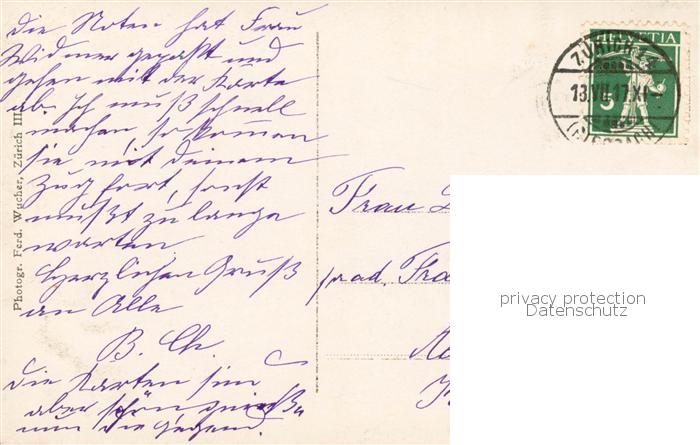 die Noten hat Frau
Widmer gepaßt und
gehen mit der Karte
ab. Ich muß schnell
machen, so kommen
sie mit deinem
Zug fort, sonst
mußt zu lange
warten.
Herzlichen Gruß
an Alle
B. Ch.
die Karten sin
aber schön
nun die Gegend.
Photogr. Ferd. Wucher, Zürich III.
HELVETIA
5
ZÜRICH
13.VII.17.XI
Frau
prad. Fra
privacy protection
Datenschutz